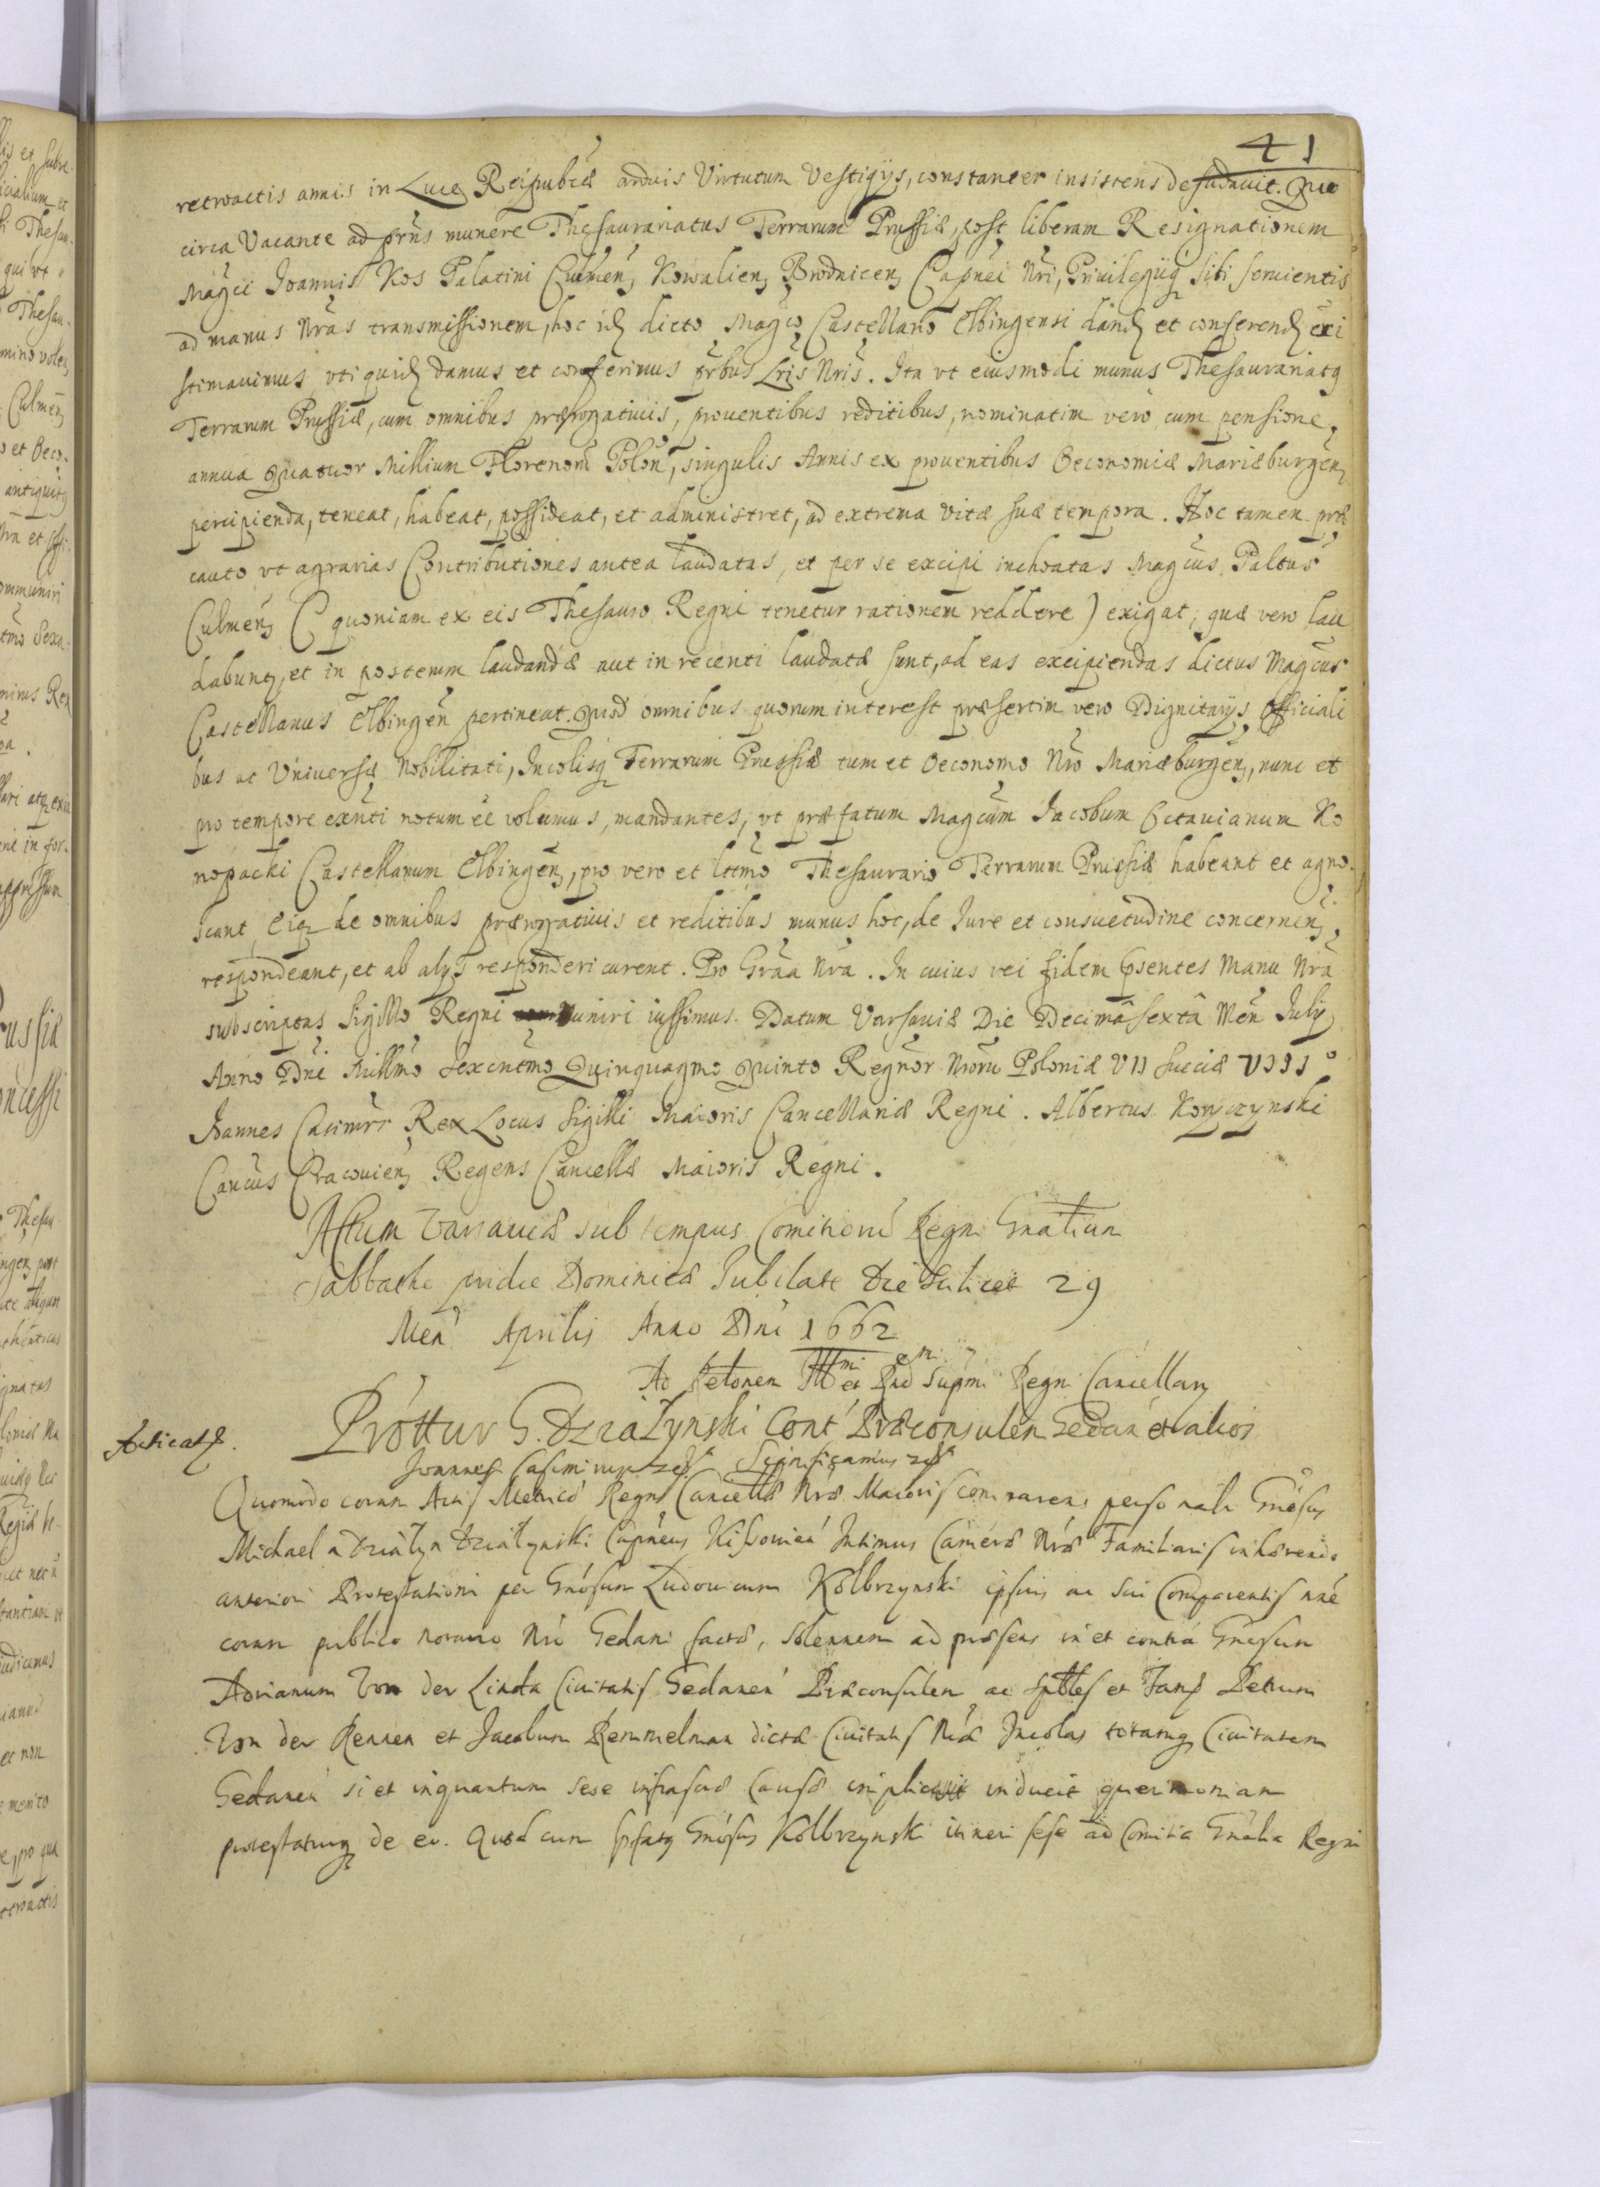 41
retroactis annis in Luce Reipubcæ arduis Virtutum Vestigijs, constanter insistens desudavit. Quo
circa Vacante ad prns munere Thesaurariatus Terrarum Prussiæ, post liberam Resignationem
Magci Joannis Kos Palatini Culmen, Kowalien, Brodnicen, Capnei Nri, Privilegijq sibi servientis
ad manus Nras transmissionem, hoc id dicto Magco Castellano Elbingensi dand et conferend exi
stimavimus, vti quid damus et conferimus prbus Lris Nris. Ita vt eiusmodi munus Thesaurariatq
Terrarum Prussiæ, cum omnibus prærogativis, proventibus reditibus, nominatim vero cum pensione
annua Quatuor Millium Florenorũ Polon, singulis Annis ex proventibus Oeconomiæ Mariæburgen
percipienda, teneat, habeat, possideat, et administret, ad extrema vitæ suæ tempora. Hoc tamen præ
cauto vt agrarias Contributiones antea laudatas, et per se excipi inchoatas Magcus Paltus
Culmen, (quoniam ex eis Thesauro Regni tenetur rationem reddere) exigat; quæ vero lau
dabunt, et in posterum laudandæ aut in recenti laudatæ sunt, ad eas excipiendas dictus Magcus
Castellanus Elbingen pertineat. Quod omnibus quorum interest præsertim vero Dignitarijs, Officiali
bus ac Universæ Nobilitati, Incolisq Terrarum Prussiæ tum et Oeconomo Nro Mariæburgen, nunc et
pro tempore exnti notum eẽ volumus, mandantes, vt præfatum Magcum Jacobum Octavianum Ko
nopacki Castellanum Elbingen, pro vero et lttmo Thesaurario Terrarum Prussiæ habeant et agno
scant, Eiq de omnibus prærogativis et reditibus munus hoc, de Jure et consuetudine concernen,
respondeant, et ab alijs responderi curent. Pro Graa Nra. In cuius rei fidem psentes Manu Nra
subscriptas Sigillo Regni muniri iussimus. Datum Varsaviæ Die Decimâ sextâ Men July
Anno Dni Millmo Sexcntmo Quinquagmo Quinto Regnor Nrorũ Poloniæ VII Sueciæ VIII°
Joannes Casimirr Rex Locus Sigilli Maioris Cancellariæ Regni. Albertus Koryczynski
Cancus Cracovien, Regens Cancellæ Maioris Regni.
Actum Varsaviæ sub tempus Comitiorũ Regni Gnalium
Sabbatho pridie Dominicæ Jubilate Die Scilicet 29
Men Aprilis Anno Dni 1662
Ad Retonem Illmi et Rnd Supmi Regn Cancellary
Prottur G. Działynski Cont Præconsulen Gedan et alios
Acticat.
Joannes Casimirus Significamus
Quomodo coram Actis Metricæ Regni Cancellæ Nræ Maioris comparens personalr Gnosus
Michael a Działyn Działynski Capneus Kissovien Intimus Cameræ Nræ Familiaris inhærendo
anteriori Protestationi per Gnosum Ludovicum Kolbrzynski ipsius ac sui Comparentis nne
coram publico notario Nro Gedani factæ, solennem ad præsens in et contra Gnosum
Adrianum Von der Linda Civitatis Gedanen Præconsulen ac spttles et Fam Petrum
Von der Rennen et Jacobum Remmelman dictæ Civitatis Næ Incolas totamq Civitatem
Gedanen si et inquantum sese infrascæ causæ inducit querimoniam
protestaturq de eo. Quod cum Gnosus Kolbrzynski itineri sese ad Comitia Gnalia Regni